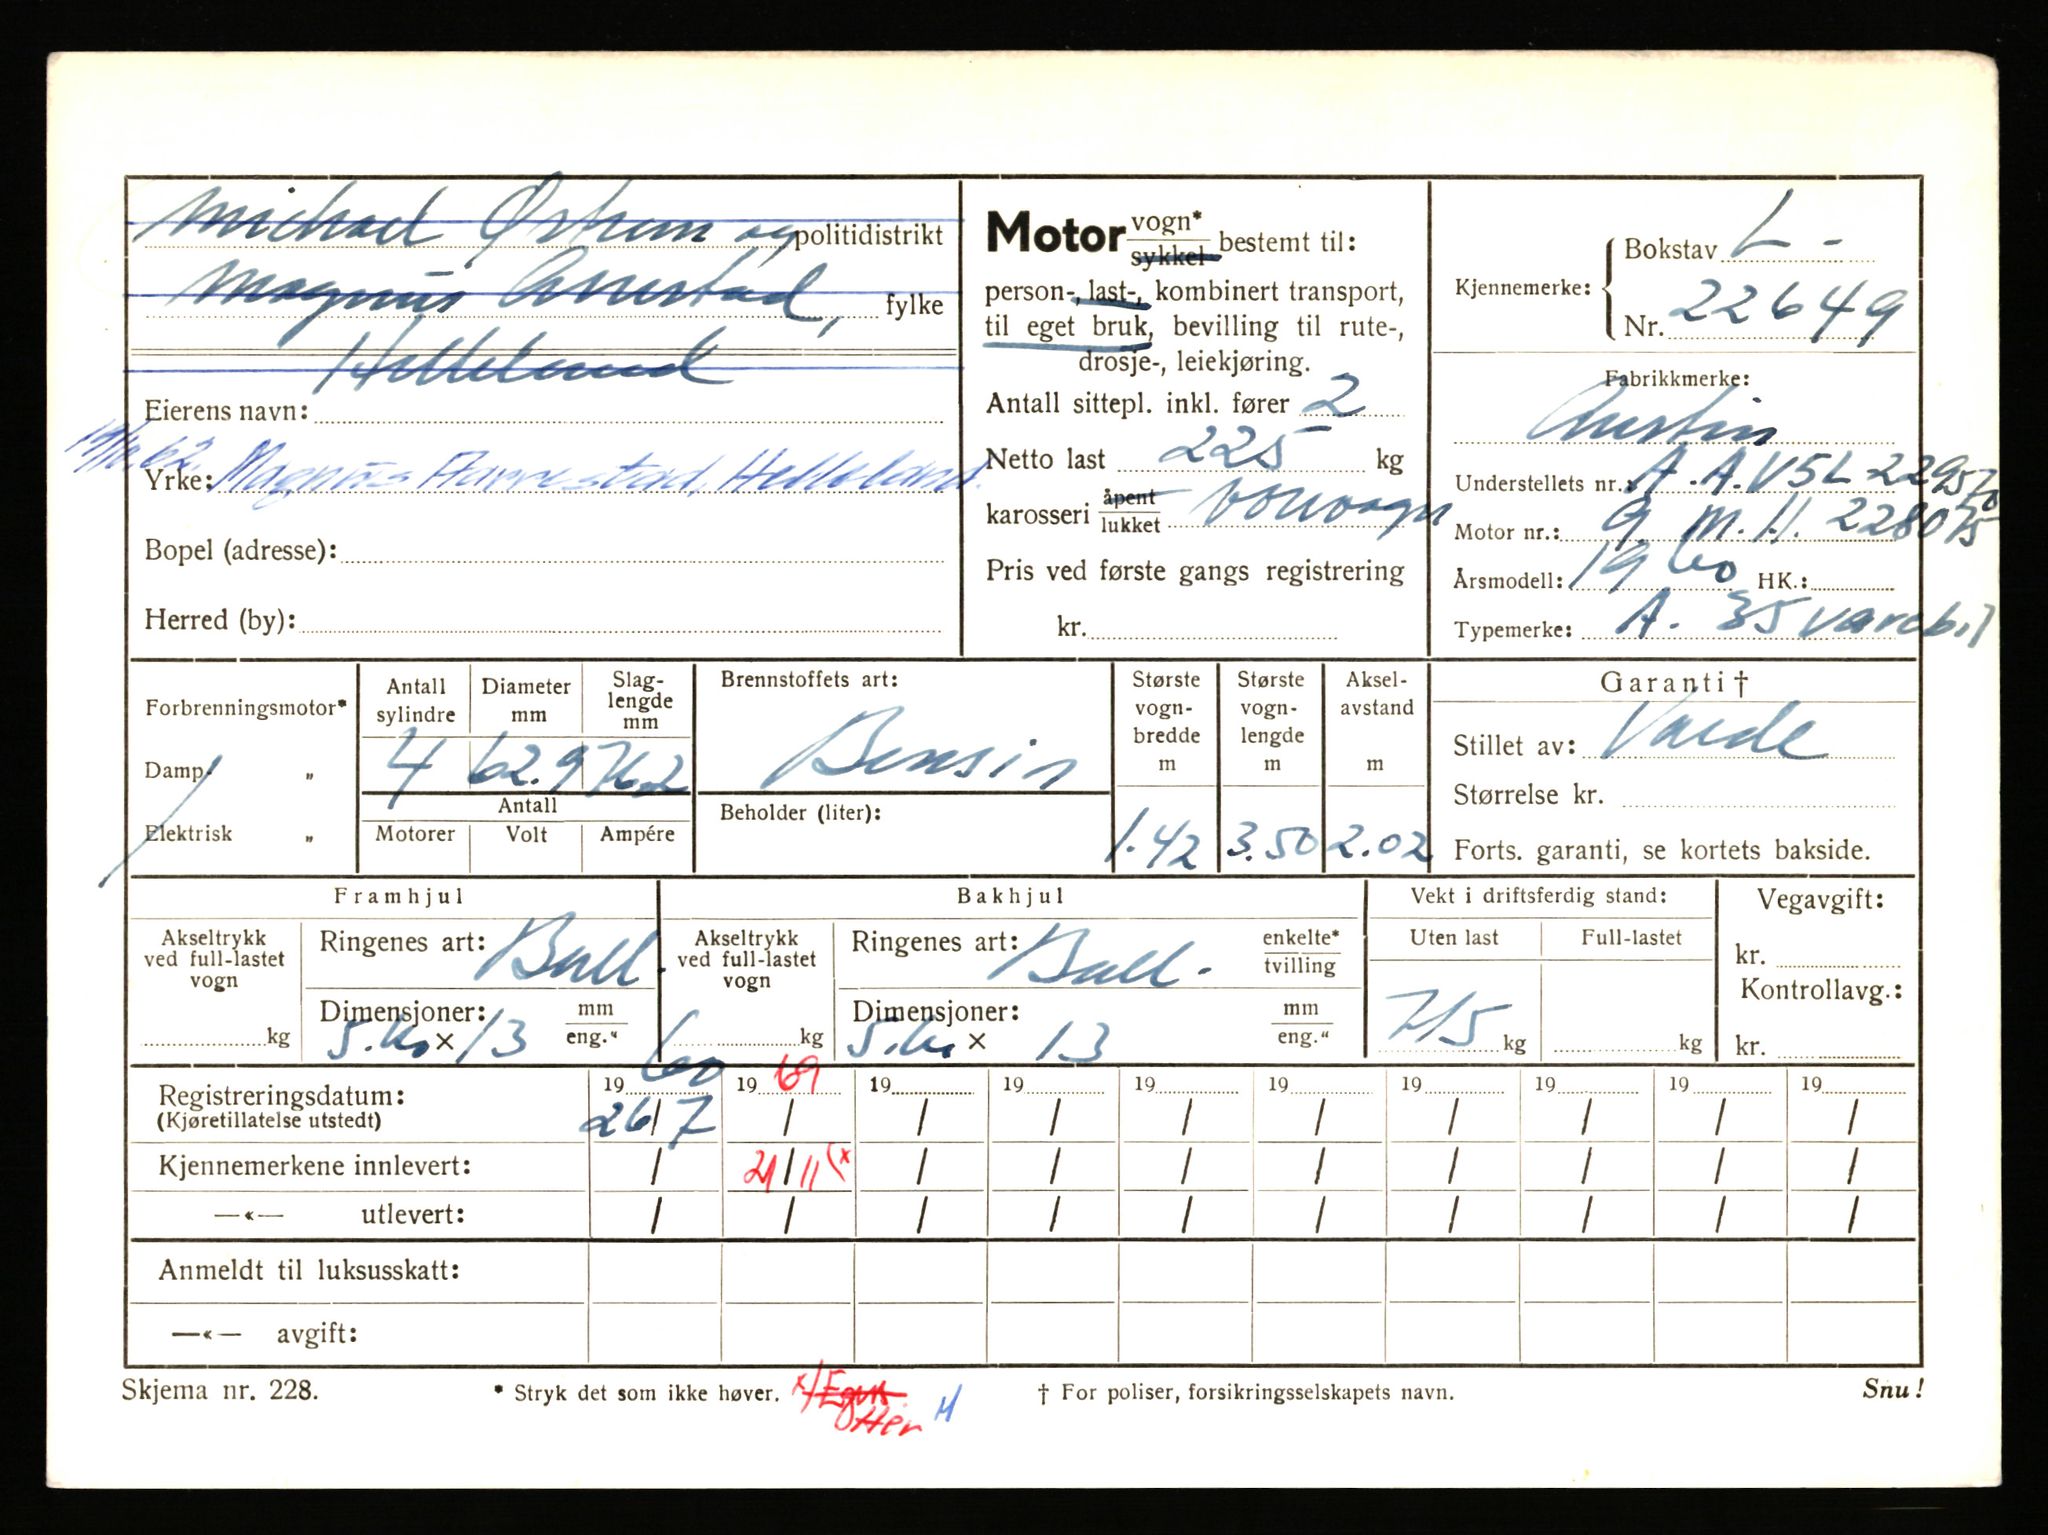 Michael Østrem og politidistrikt
Magnus Arrestad, fylke
Helleland
Eierens navn:
19/10.62. Yrke: Magnus Aarrestad, Helleland.
Bopel (adresse):
Herred (by):
Motor vogn* / sykkel bestemt til:
person-, last-, kombinert transport,
til eget bruk, bevilling til rute-,
drosje-, leiekjøring.
Antall sittepl. inkl. fører 2
Netto last 225 kg
karosseri åpent / lukket varevogn
Pris ved første gangs registrering
kr.
Kjennemerke: Bokstav L -
Nr. 22649
Fabrikkmerke:
Austin
Understellets nr.: A.A.V5L-229570
Motor nr.: 9.M.H. 228075
Årsmodell: 1960 HK.:
Typemerke: A. 35 varebil
Forbrenningsmotor*
Damp- „
Elektrisk „
Antall sylindre 4
Diameter mm 62.9
Slag-lengde mm 76.2
Antall
Motorer Volt Ampére
Brennstoffets art:
Bensin
Beholder (liter):
Største vogn-bredde m 1.42
Største vogn-lengde m 3.50
Aksel-avstand m 2.02
Garanti †
Stillet av: Varde
Størrelse kr.
Forts. garanti, se kortets bakside.
Framhjul
Akseltrykk ved full-lastet vogn kg
Ringenes art: Ball.
Dimensjoner: 5.60 × 13 mm / eng.“
Bakhjul
Akseltrykk ved full-lastet vogn kg
Ringenes art: Ball. enkelte* / tvilling
Dimensjoner: 5.60 × 13 mm / eng.“
Vekt i driftsferdig stand:
Uten last Full-lastet
715 kg kg
Vegavgift:
kr.
Kontrollavg.:
kr.
1960 1969 19 19 19 19 19 19 19 19
Registreringsdatum: 26/7 / / / / / / / / /
(Kjøretillatelse utstedt)
Kjennemerkene innlevert: / 21/11 (x / / / / / / / /
—«— utlevert: / / / / / / / / / /
Anmeldt til luksusskatt:
—«— avgift:
Skjema nr. 228. * Stryk det som ikke høver. † For poliser, forsikringsselskapets navn. Snu!
x/
Her